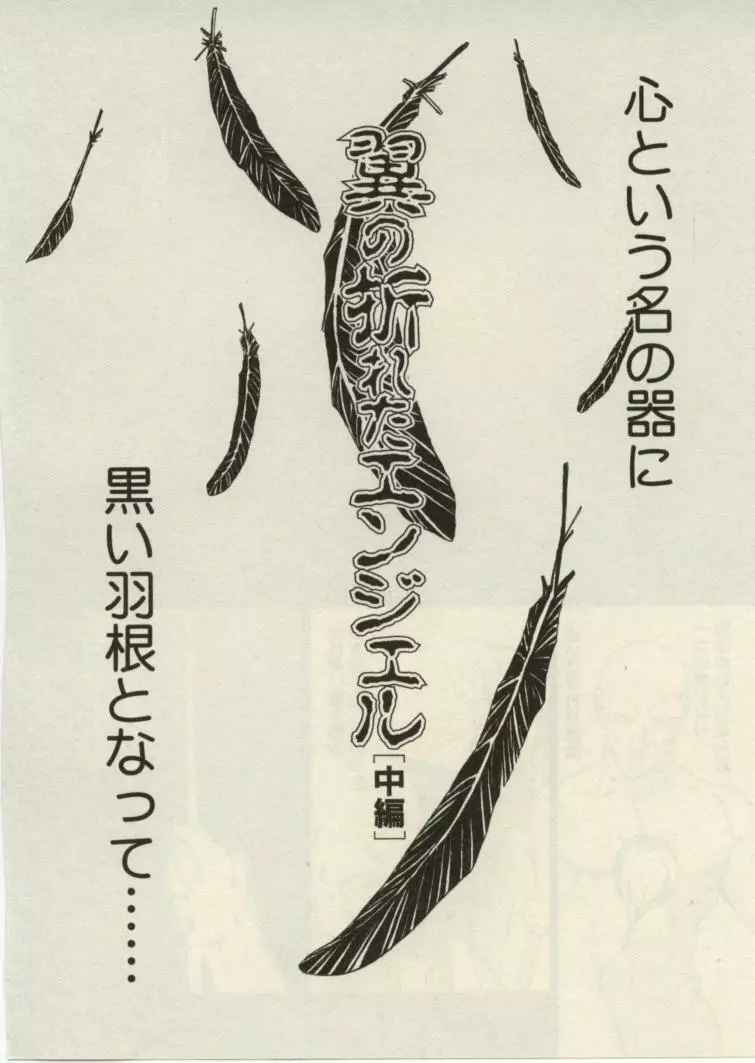 心という名の器に
翼の折れたエンジェル
[中編]
黒い羽根となって……